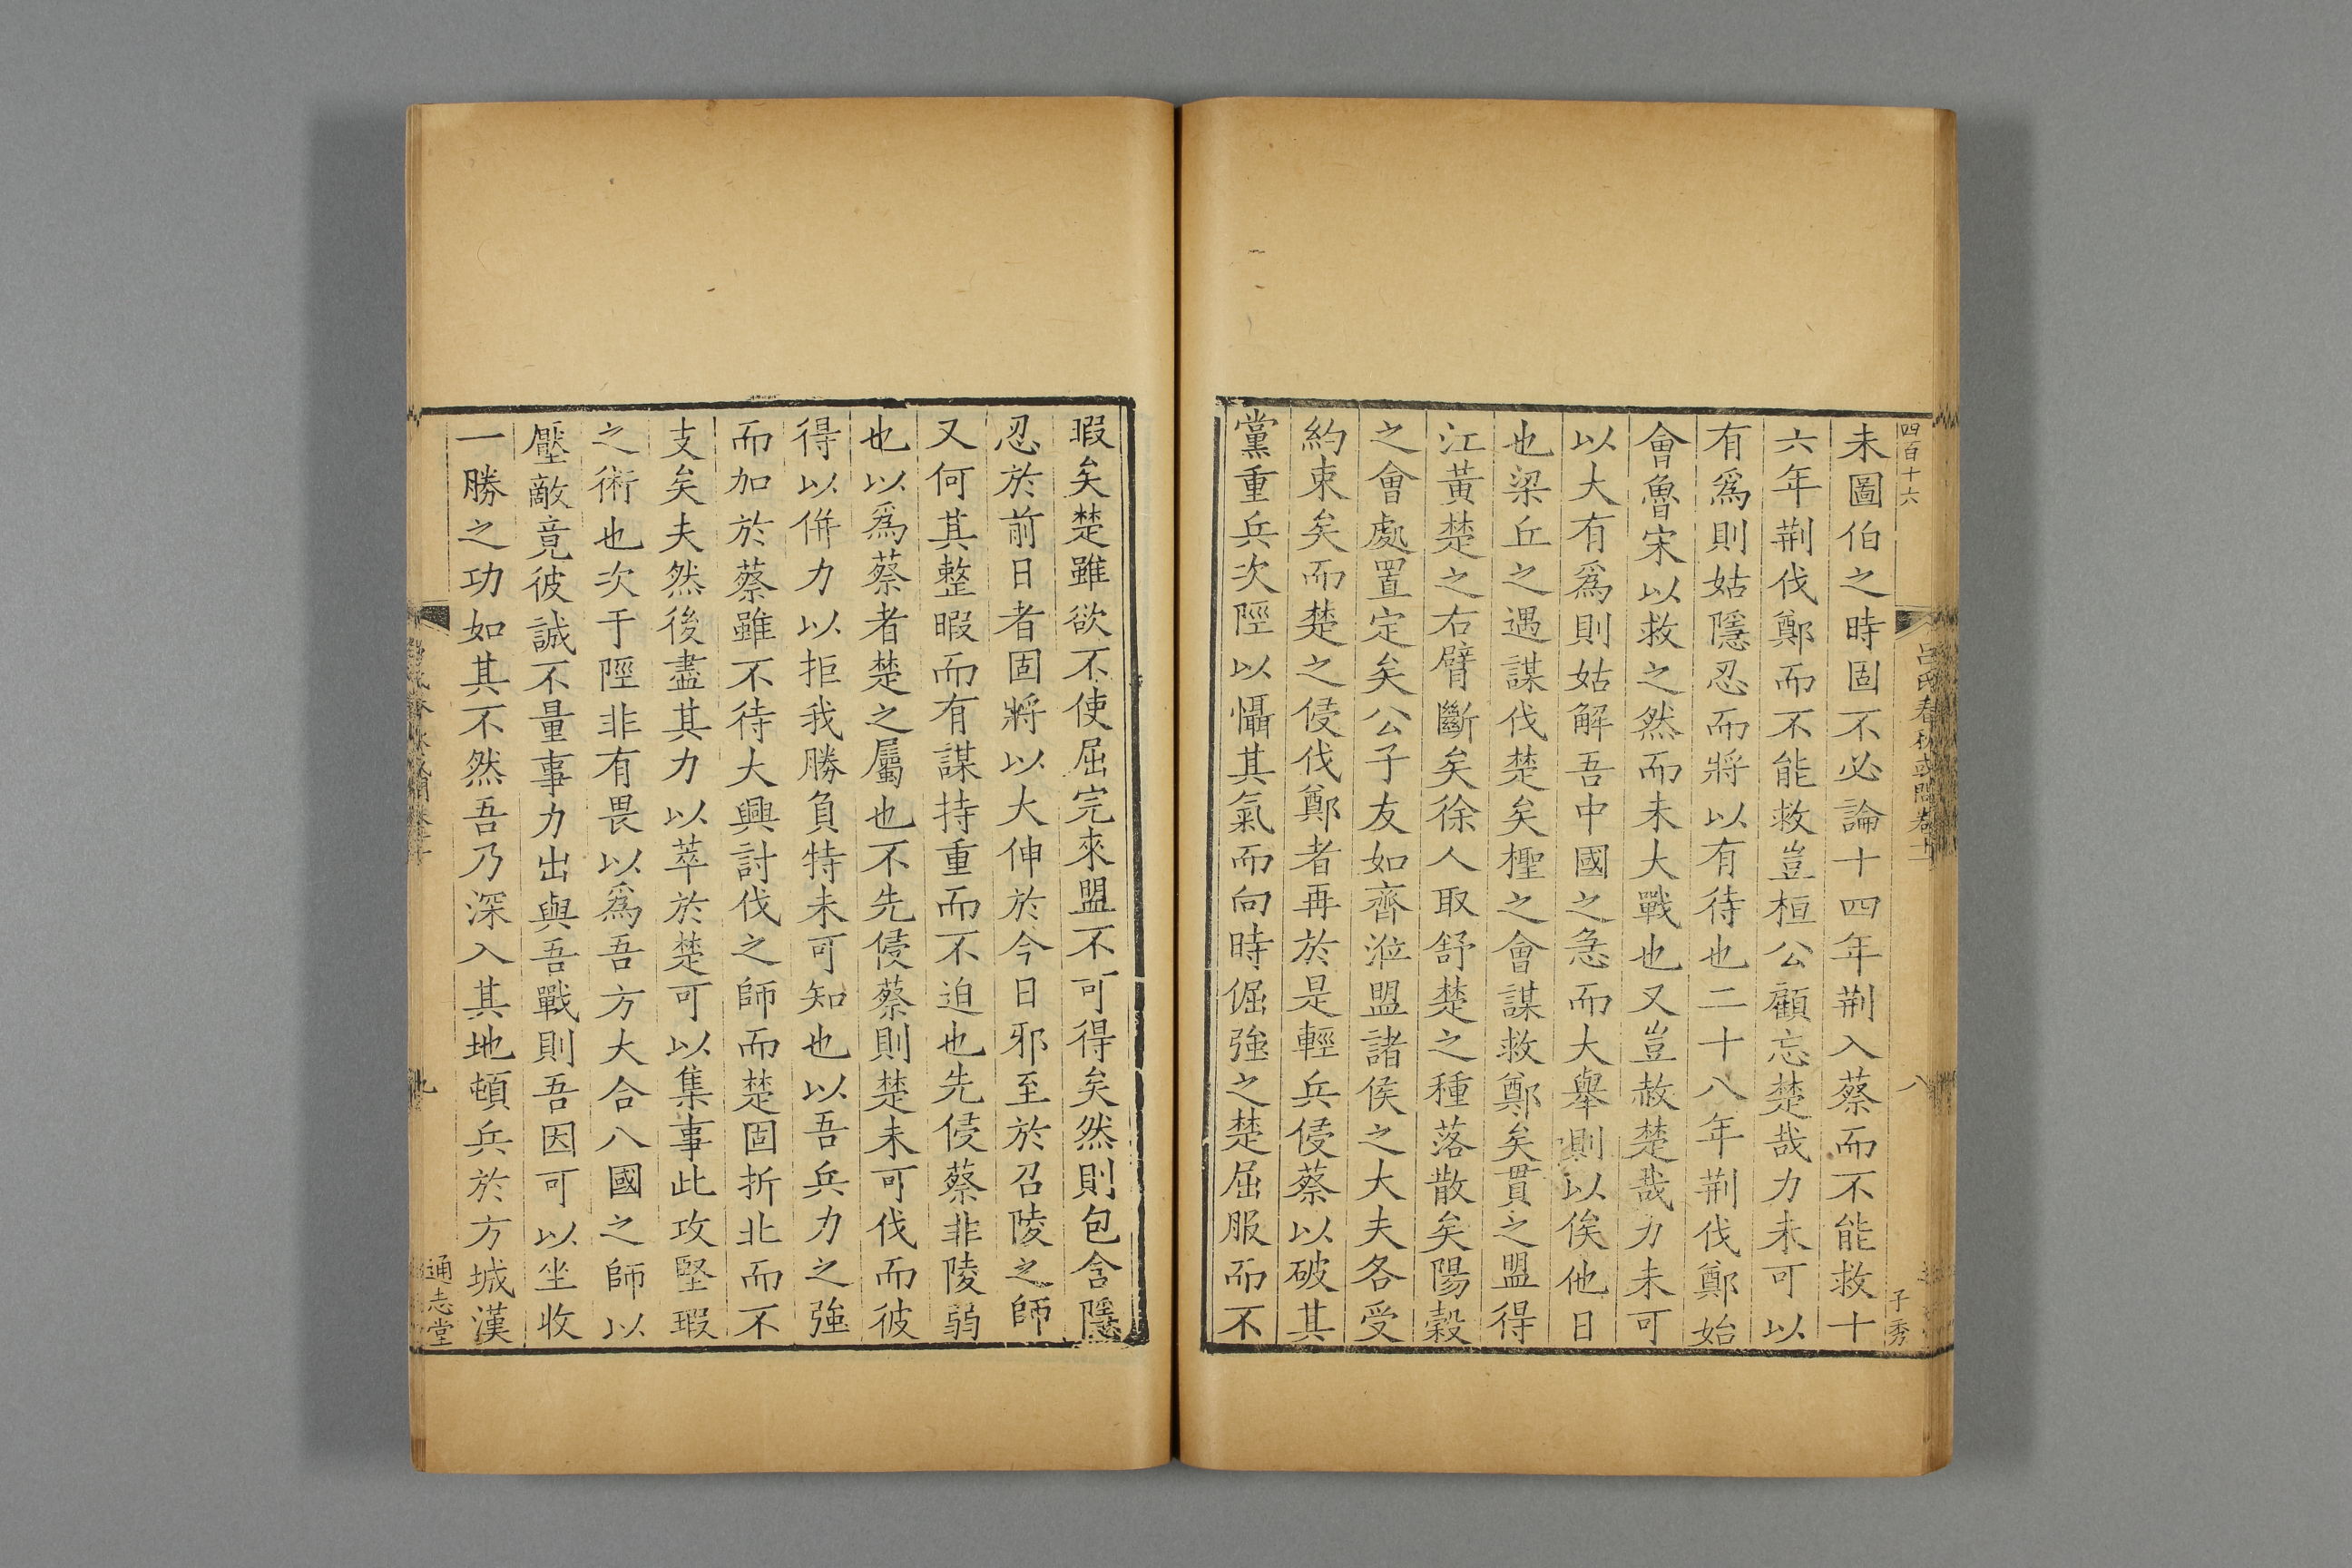 四百十六
呂氏春秋或問卷十一
八
子秀
未圖伯之時固不必論十四年荆入蔡而不能救十
六年荆伐鄭而不能救豈桓公顧忘楚哉力未可以
有爲則姑隱忍而將以有待也二十八年荆伐鄭始
會魯宋以救之然而未大戰也又豈赦楚哉力未可
以大有爲則姑解吾中國之急而大舉則以俟他日
也梁丘之遇謀伐楚矣檉之會謀救鄭矣貫之盟得
江黃楚之右臂斷矣徐人取舒楚之種落散矣陽穀
之會處置定矣公子友如齊涖盟諸侯之大夫各受
約束矣而楚之侵伐鄭者再於是輕兵侵蔡以破其
黨重兵次陘以懾其氣而向時倔強之楚屈服而不
暇矣楚雖欲不使屈完來盟不可得矣然則包含隱
忍於前日者固將以大伸於今日邪至於召陵之師
又何其整暇而有謀持重而不迫也先侵蔡非陵弱
也以爲蔡者楚之屬也不先侵蔡則楚未可伐而彼
得以併力以拒我勝負特未可知也以吾兵力之強
而加於蔡雖不待大興討伐之師而楚固折北而不
支矣夫然後盡其力以萃於楚可以集事此攻堅瑕
之術也次于陘非有畏以爲吾方大合八國之師以
壓敵竟彼誠不量事力出與吾戰則吾因可以坐收
一勝之功如其不然吾乃深入其地頓兵於方城漢
九
通志堂